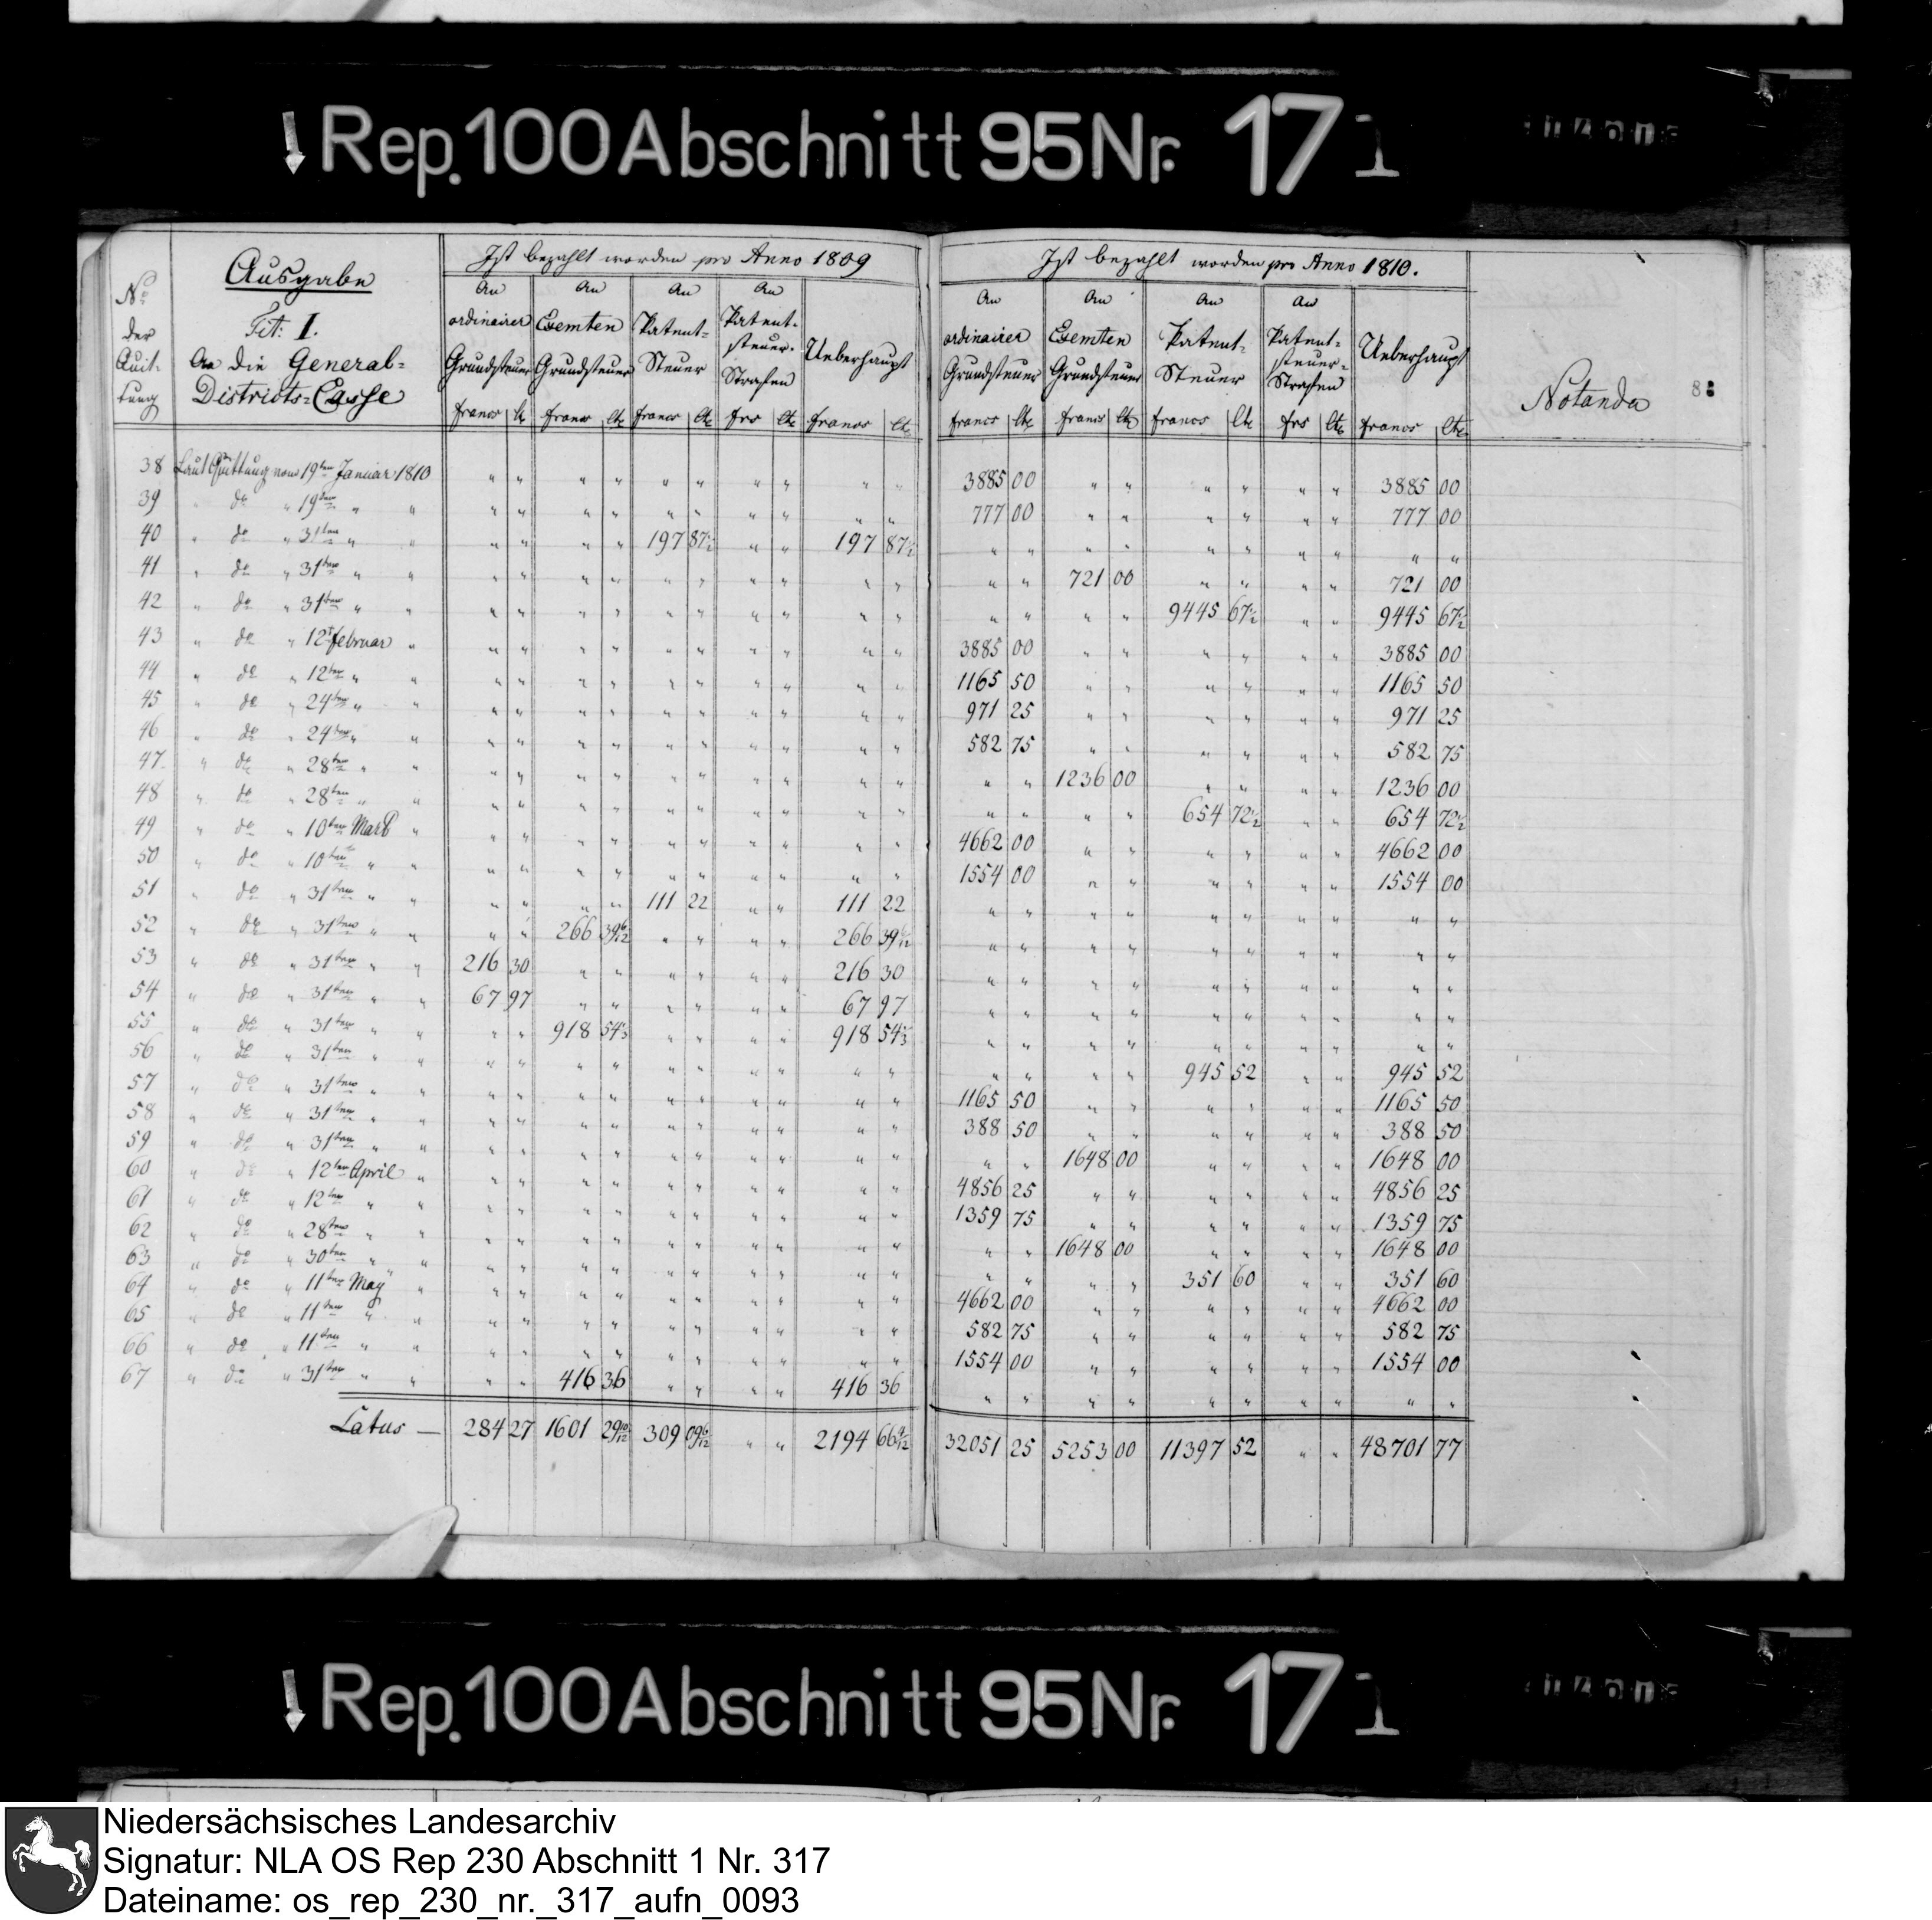 Rep. 100 Abschnitt 95 Nr. 17 1
No der Quit- tung
Ausgabe
Tit: I.
An die General-
Districts-Casse
Ist bezahlt worden pro Anno 1809
An ordinairer Grundsteuer francs cts
An Exemten Grundsteuer francs cts
An Patent- Steuer francs cts
An Patent- steuer- Strafen frs cts
Ueberhaupt francs cts
Ist bezahlt worden pro Anno 1810.
An ordinairer Grundsteuer francs cts
An Exemten Grundsteuer francs cts
An Patent- Steuer francs cts
An Patent- steuer- Strafen frs cts
Ueberhaupt francs cts
Notanda
8
38 Laut Quittung vom 19ten Januar 1810 " " " " " " " " " " 3885 00 " " " " " " 3885 00
39 " do " 19ten " " " " " " " " " " " " 777 00 " " " " " " 777 00
40 " do " 31ten " " " " " " 197 87½ " " 197 87½ " " " " " " " " " "
41 " do " 31ten " " " " " " " " " " " " " " 721 00 " " " " 721 00
42 " do " 31ten " " " " " " " " " " " " " " " " 9445 67½ " " 9445 67½
43 " do " 12t februar " " " " " " " " " " " 3885 00 " " " " " " 3885 00
44 " do " 12ten " " " " " " " " " " " " 1165 50 " " " " " " 1165 50
45 " do " 24ten " " " " " " " " " " " " 971 25 " " " " " " 971 25
46 " do " 24ten " " " " " " " " " " " " 582 75 " " " " " " 582 75
47 " do " 28ten " " " " " " " " " " " " " " 1236 00 " " " " 1236 00
48 " do " 28ten " " " " " " " " " " " " " " " " 654 72½ " " 654 72½
49 " do " 10ten Martz " " " " " " " " " " " 4662 00 " " " " " " 4662 00
50 " do " 10ten " " " " " " " " " " " " 1554 00 " " " " " " 1554 00
51 " do " 31ten " " " " " " 111 22 " " 111 22 " " " " " " " " " "
52 " do " 31ten " " " " 266 39 6/12 " " " " 266 39 6/12 " " " " " " " " " "
53 " do " 31ten " " 216 30 " " " " " " 216 30 " " " " " " " " " "
54 " do " 31ten " " 67 97 " " " " " " 67 97 " " " " " " " " " "
55 " do " 31ten " " " " 918 54⅓ " " " " 918 54⅓ " " " " " " " " " "
56 " do " 31ten " " " " " " " " " " " " " " " " 945 52 " " 945 52
57 " do " 31ten " " " " " " " " " " " " 1165 50 " " " " " " 1165 50
58 " do " 31ten " " " " " " " " " " " " 388 50 " " " " " " 388 50
59 " do " 31ten " " " " " " " " " " " " " " 1648 00 " " " " 1648 00
60 " do " 12ten April " " " " " " " " " " " 4856 25 " " " " " " 4856 25
61 " do " 12ten " " " " " " " " " " " " 1359 75 " " " " " " 1359 75
62 " do " 28ten " " " " " " " " " " " " " " 1648 00 " " " " 1648 00
63 " do " 30ten " " " " " " " " " " " " " " " " 351 60 " " 351 60
64 " do " 11ten May " " " " " " " " " " " 4662 00 " " " " " " 4662 00
65 " do " 11ten " " " " " " " " " " " " 582 75 " " " " " " 582 75
66 " do " 11ten " " " " " " " " " " " " 1554 00 " " " " " " 1554 00
67 " do " 31ten " " " " 416 36 " " " " 416 36 " " " " " " " " " "
Latus — 284 27 1601 29 10/12 309 09 6/12 " " 2194 66 4/12 32051 25 5253 00 11397 52 " " 48701 77
Rep. 100 Abschnitt 95 Nr. 17 1
Niedersächsisches Landesarchiv
Signatur: NLA OS Rep 230 Abschnitt 1 Nr. 317
Dateiname: os_rep_230_nr._317_aufn_0093